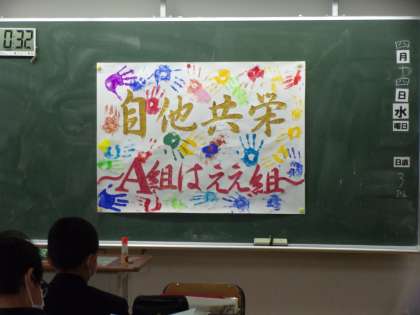 0:32
自他共栄
〜A組はええ組〜
四月
十四日
水
曜日
日直